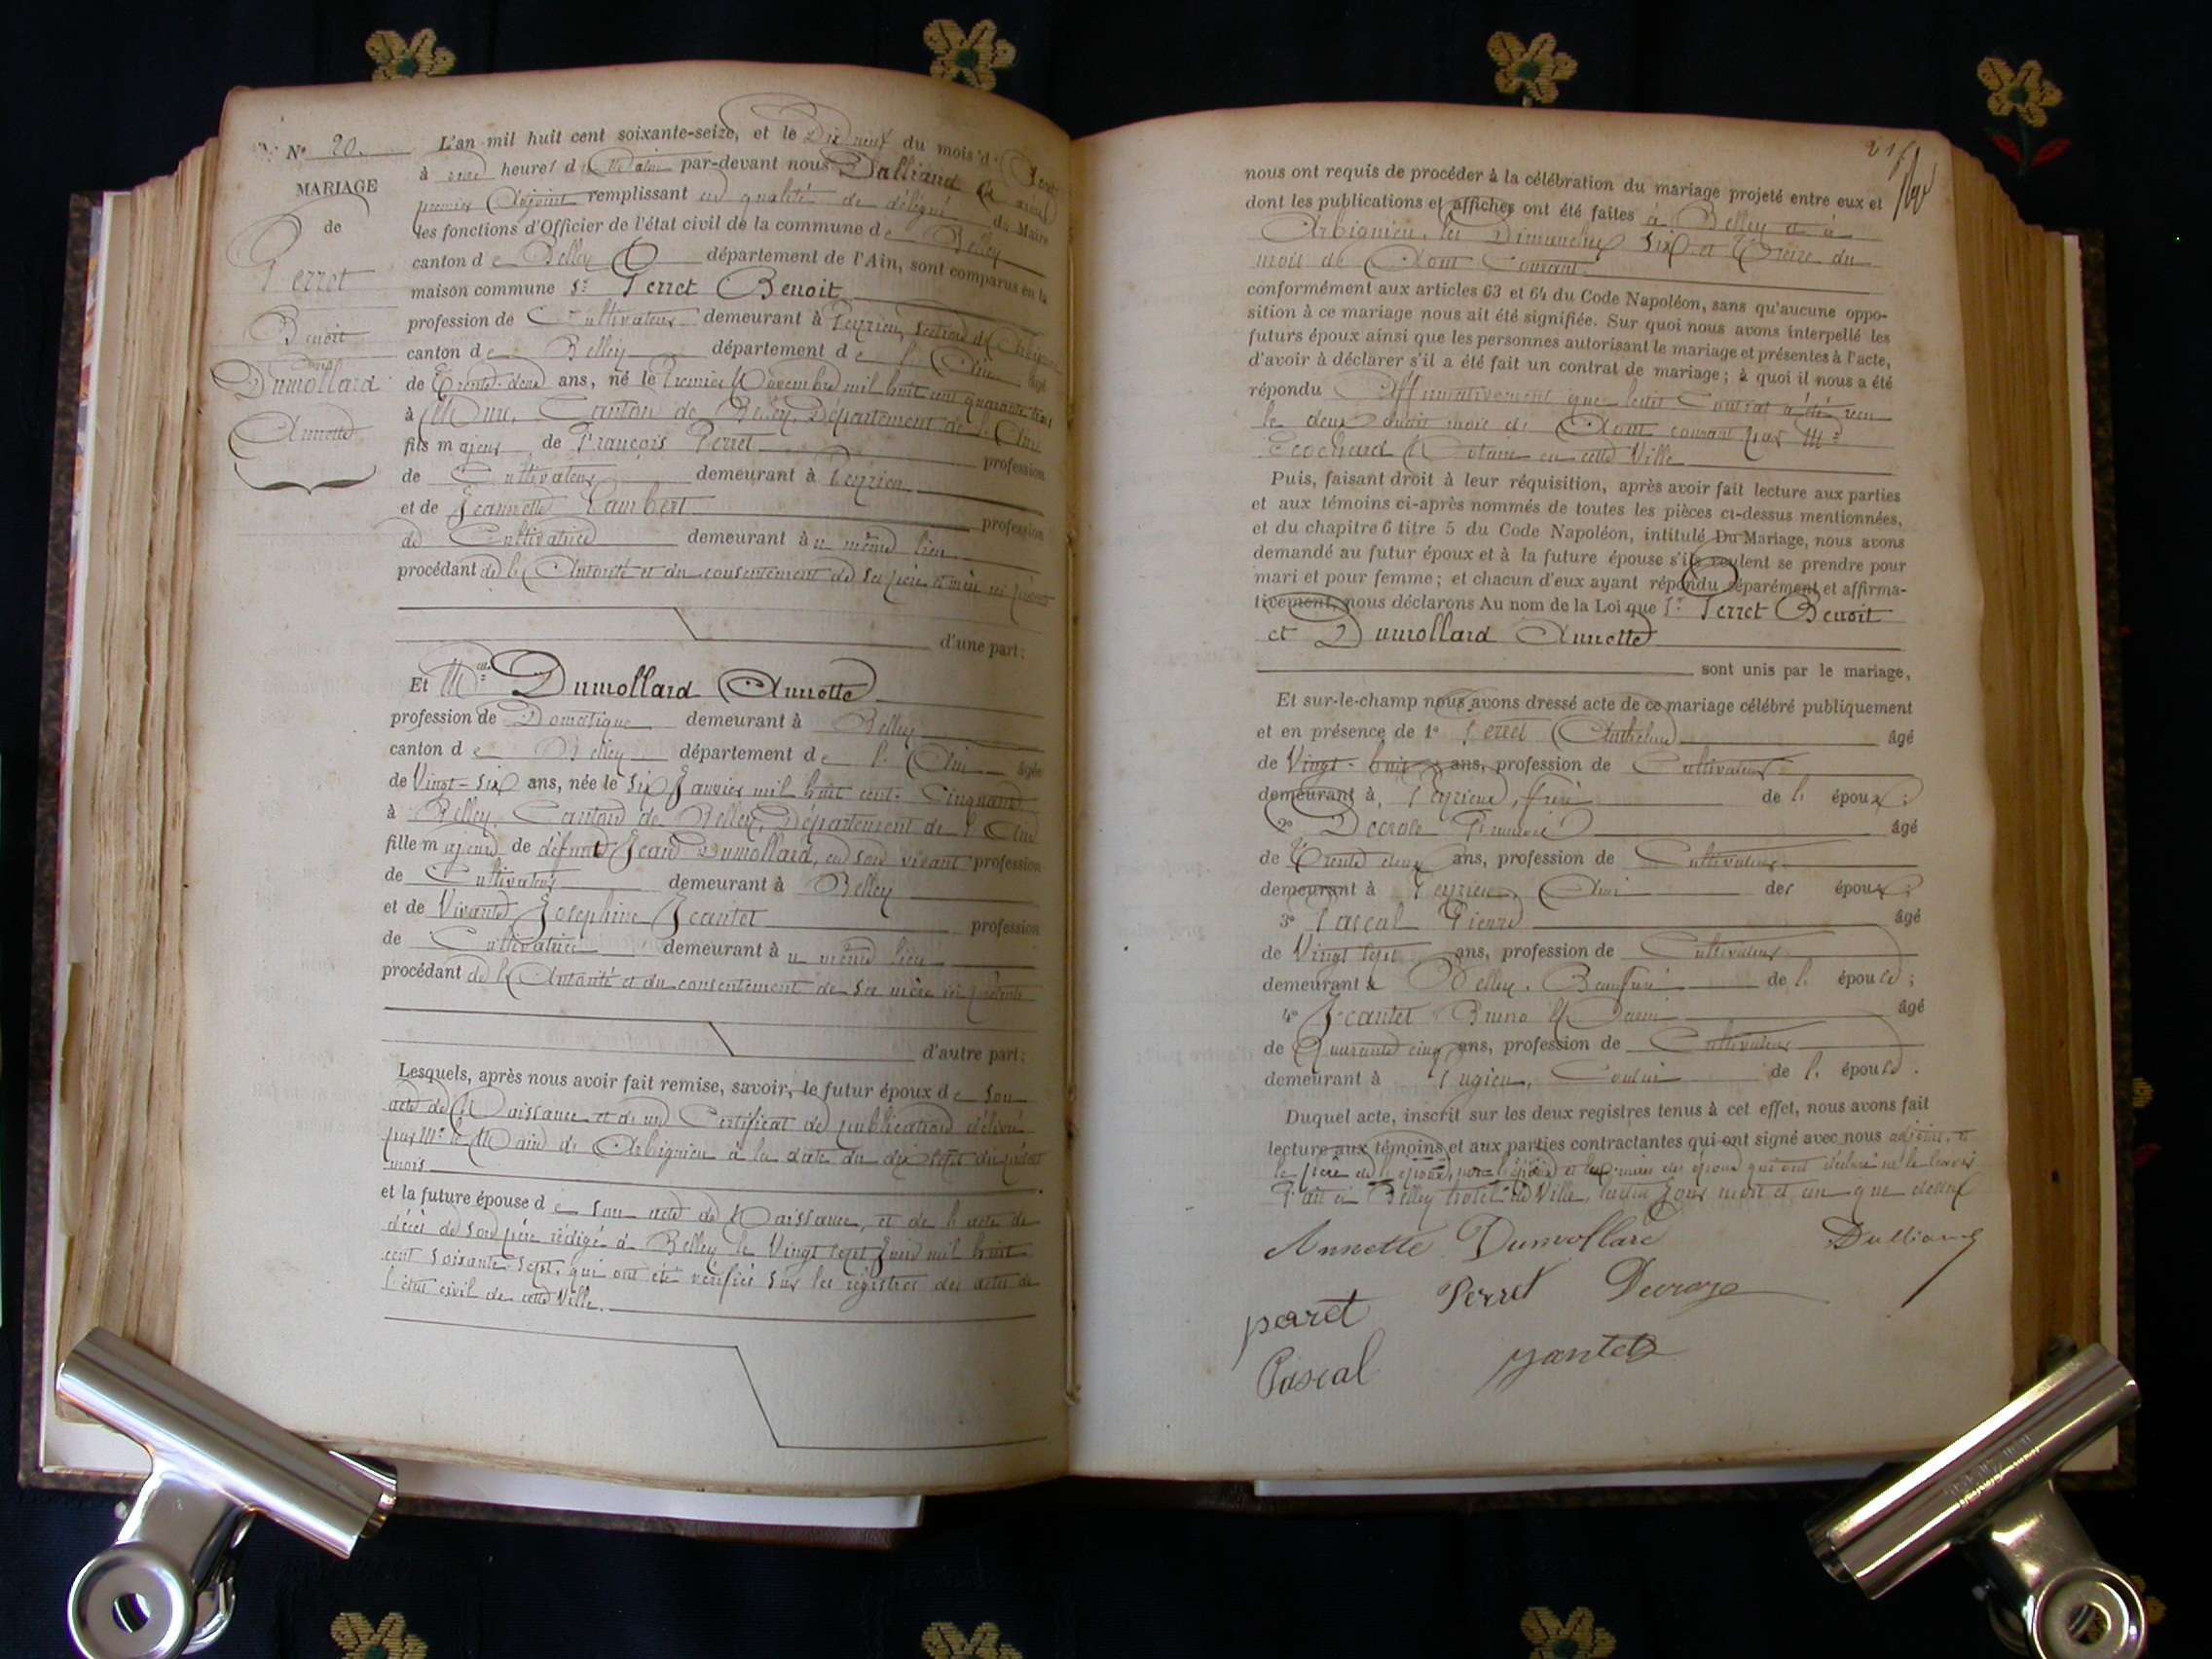 N° 20
MARIAGE
de
Perret
Benoit
avec
Dumollard
Annette
L'an mil huit cent soixante-seize, et le Dix neuf du mois d'Aout
à onze heures du Matin par-devant nous Dalliand
premier Adjoint remplissant en qualité de délégué du Maire
les fonctions d'Officier de l'état civil de la commune de Belley
canton de Belley département de l'Ain, sont comparus en la
maison commune Sr Perret Benoit
profession de Cultivateur demeurant à Peyrieu, section d'Arbignieu
canton de Belley département de l'Ain âgé
de Trente-deux ans, né le Premier Novembre mil huit cent quarante trois
à Canton de Belley, Département de l'Ain
fils majeur de François Perret profession
de Cultivateur demeurant à Peyrieu
et de Jeannette Lambert profession
de Cultivatrice demeurant au même lieu
procédant de l'Autorité et du consentement de ses père et mère ici présents
d'une part;
Et Mlle Dumollard Annette
profession de Domestique demeurant à Belley
canton de Belley département de l'Ain âgée
de Vingt-six ans, née le Six Janvier mil huit cent Cinquante
à Belley, Canton de Belley, Département de l'Ain
fille majeure de défunt Jean Dumollard, en son vivant profession
de Cultivateur demeurant à Belley
et de Vivante Joséphine Jeantet profession
de Cultivatrice demeurant au même lieu
procédant de l'Autorité et du consentement de sa mère ici présente
d'autre part;
Lesquels, après nous avoir fait remise, savoir, le futur époux de son
acte de Naissance et d'un Certificat de publication délivré
par Mr le Maire d'Arbignieu à la date du dix sept du présent
mois
et la future épouse de son acte de Naissance, et de l'acte de
décès de son père rédigé à Belley le Vingt sept Juin mil huit
cent soixante-sept, qui ont été vérifiés sur les registres des actes de
l'état civil de cette Ville.
nous ont requis de procéder à la célébration du mariage projeté entre eux et
dont les publications et affiches ont été faites à Belley et à
Arbignieu, les Dimanches Six et Treize du
mois de Aout Courant
conformément aux articles 63 et 64 du Code Napoléon, sans qu'aucune oppo-
sition à ce mariage nous ait été signifiée. Sur quoi nous avons interpellé les
futurs époux ainsi que les personnes autorisant le mariage et présentes à l'acte,
d'avoir à déclarer s'il a été fait un contrat de mariage; à quoi il nous a été
répondu Affirmativement que ledit Contrat a été reçu
le deux dudit mois de Aout courant par Me
Ecochard Notaire en cette Ville
Puis, faisant droit à leur réquisition, après avoir fait lecture aux parties
et aux témoins ci-après nommés de toutes les pièces ci-dessus mentionnées,
et du chapitre 6 titre 5 du Code Napoléon, intitulé Du Mariage, nous avons
demandé au futur époux et à la future épouse s'ils veulent se prendre pour
mari et pour femme; et chacun d'eux ayant répondu séparément et affirma-
tivement, nous déclarons Au nom de la Loi que Sr Perret Benoit
et Dumollard Annette
sont unis par le mariage,
Et sur-le-champ nous avons dressé acte de ce mariage célébré publiquement
et en présence de 1° Perret Anthelme âgé
de Vingt-huit ans, profession de Cultivateur
demeurant à Peyrieu, frère de l'époux;
2° Decroze âgé
de Trente deux ans, profession de Cultivateur
demeurant à Peyrieu, Ami des époux;
3° Pascal Pierre âgé
de Vingt sept ans, profession de Cultivateur
demeurant à Belley, Beaufrère de l'épouse;
4° Jeantet Bruno âgé
de Quarante cinq ans, profession de Cultivateur
demeurant à Pugieu, Cousin de l'épouse.
Duquel acte, inscrit sur les deux registres tenus à cet effet, nous avons fait
lecture aux témoins et aux parties contractantes qui ont signé avec nous adjoint, et
le père de l'époux, non l'époux et les mères des époux qui ont déclaré ne le savoir
Fait à Belley hôtel de Ville, lesdits jour mois et an que dessus
Annette Dumollard Dalliand
peret Perret Decroze
Pascal yantet